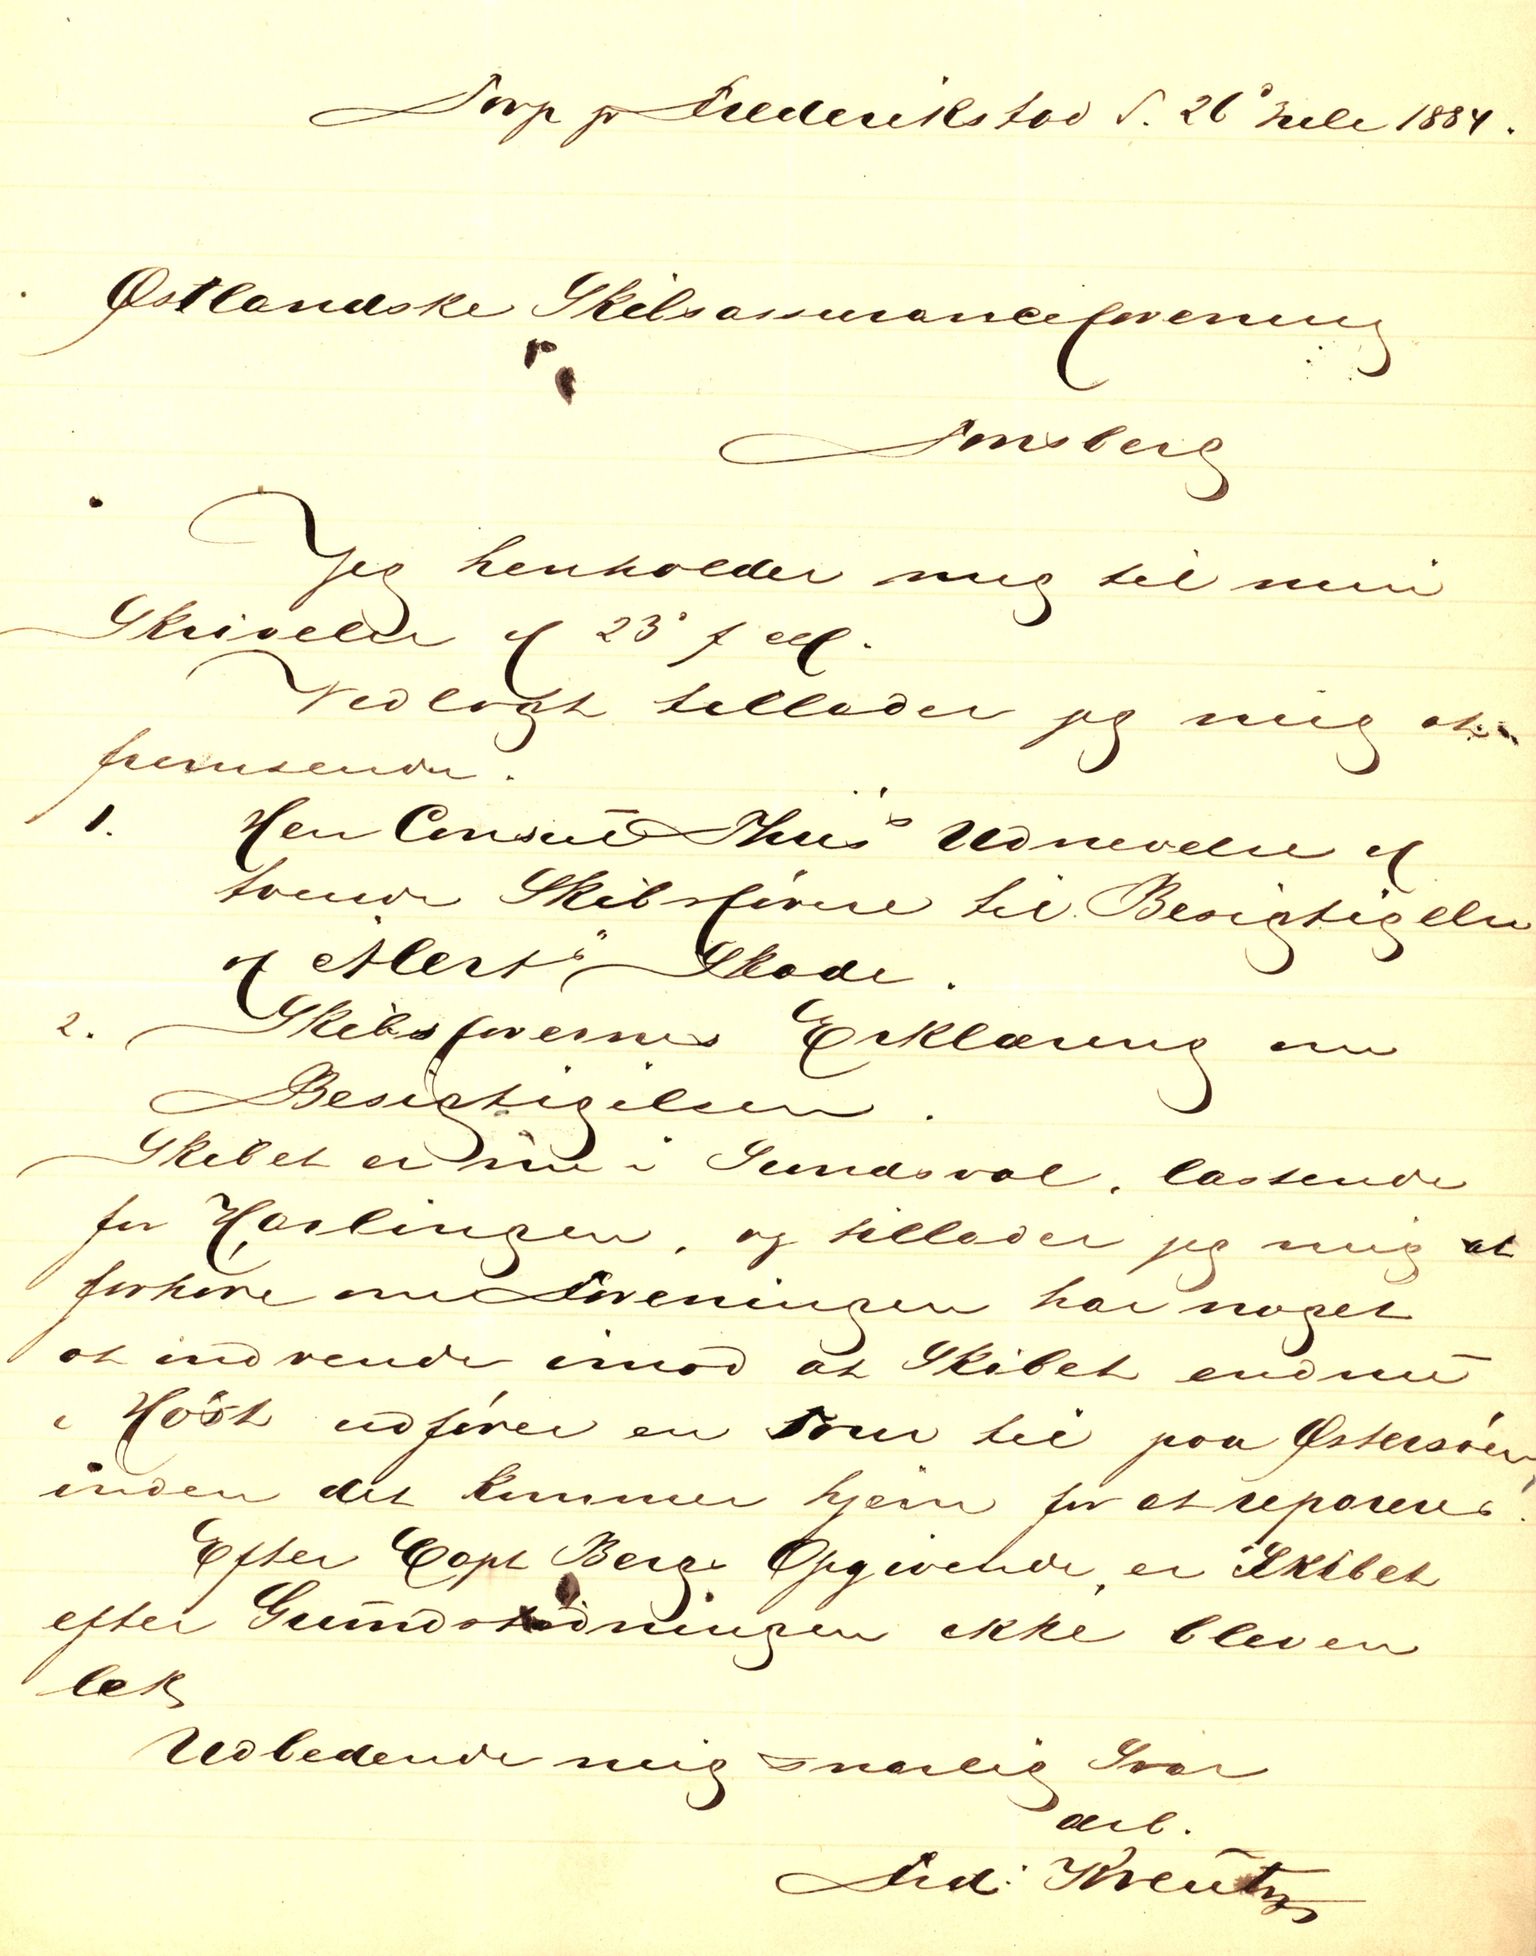 Torp pr Frederikstad d. 26 Juli 1884.
Østlandske Skibsassuranceforening
Tønsberg
Jeg henholder mig til min
Skrivelse af 23'
Vedlagt tillader jeg mig at
fremsende.
1. Herr Consul Thiis's Udnevelse af
tvende Skibsførere til Besigtigelse
af Alert's Skade.
2. Skibsførernes Erklæring om
Besigtigelsen.
Skibet er nu i Sundsval, lastende
for Harlingen, og tillader jeg mig at
forhøre om Foreningen har noget
at indvende imod at Skibet endnu
i Høst udfører en Tour til paa Østersøen,
inden det kommer hjem for at repareres.
Efter Capt Bergs Opgivende, er Skibet
efter Grundstødningen ikke bleven
læk
Udbedende mig snarlig Svar
ærb.
Fred: Kreutz